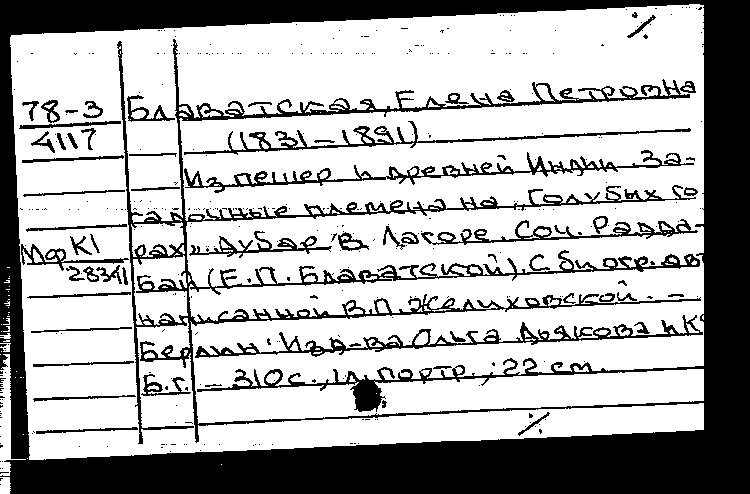 78-3 Блаватская, Елена Петровна
4117 (1831-1891).
Из пещер и древней Индии. За-
гадочные племена на „Голубых го
МфК1 рах". Дубар в Лагоре. Соч. Радда-
28341 Бай (Е.П. Блаватской). С биогр. авт
написанной В.П. Желиховской. –
Берлин: Изд-ва Ольга Дьякова и К°
Б.г. – 310 с., 1 л. портр.; 22 см.